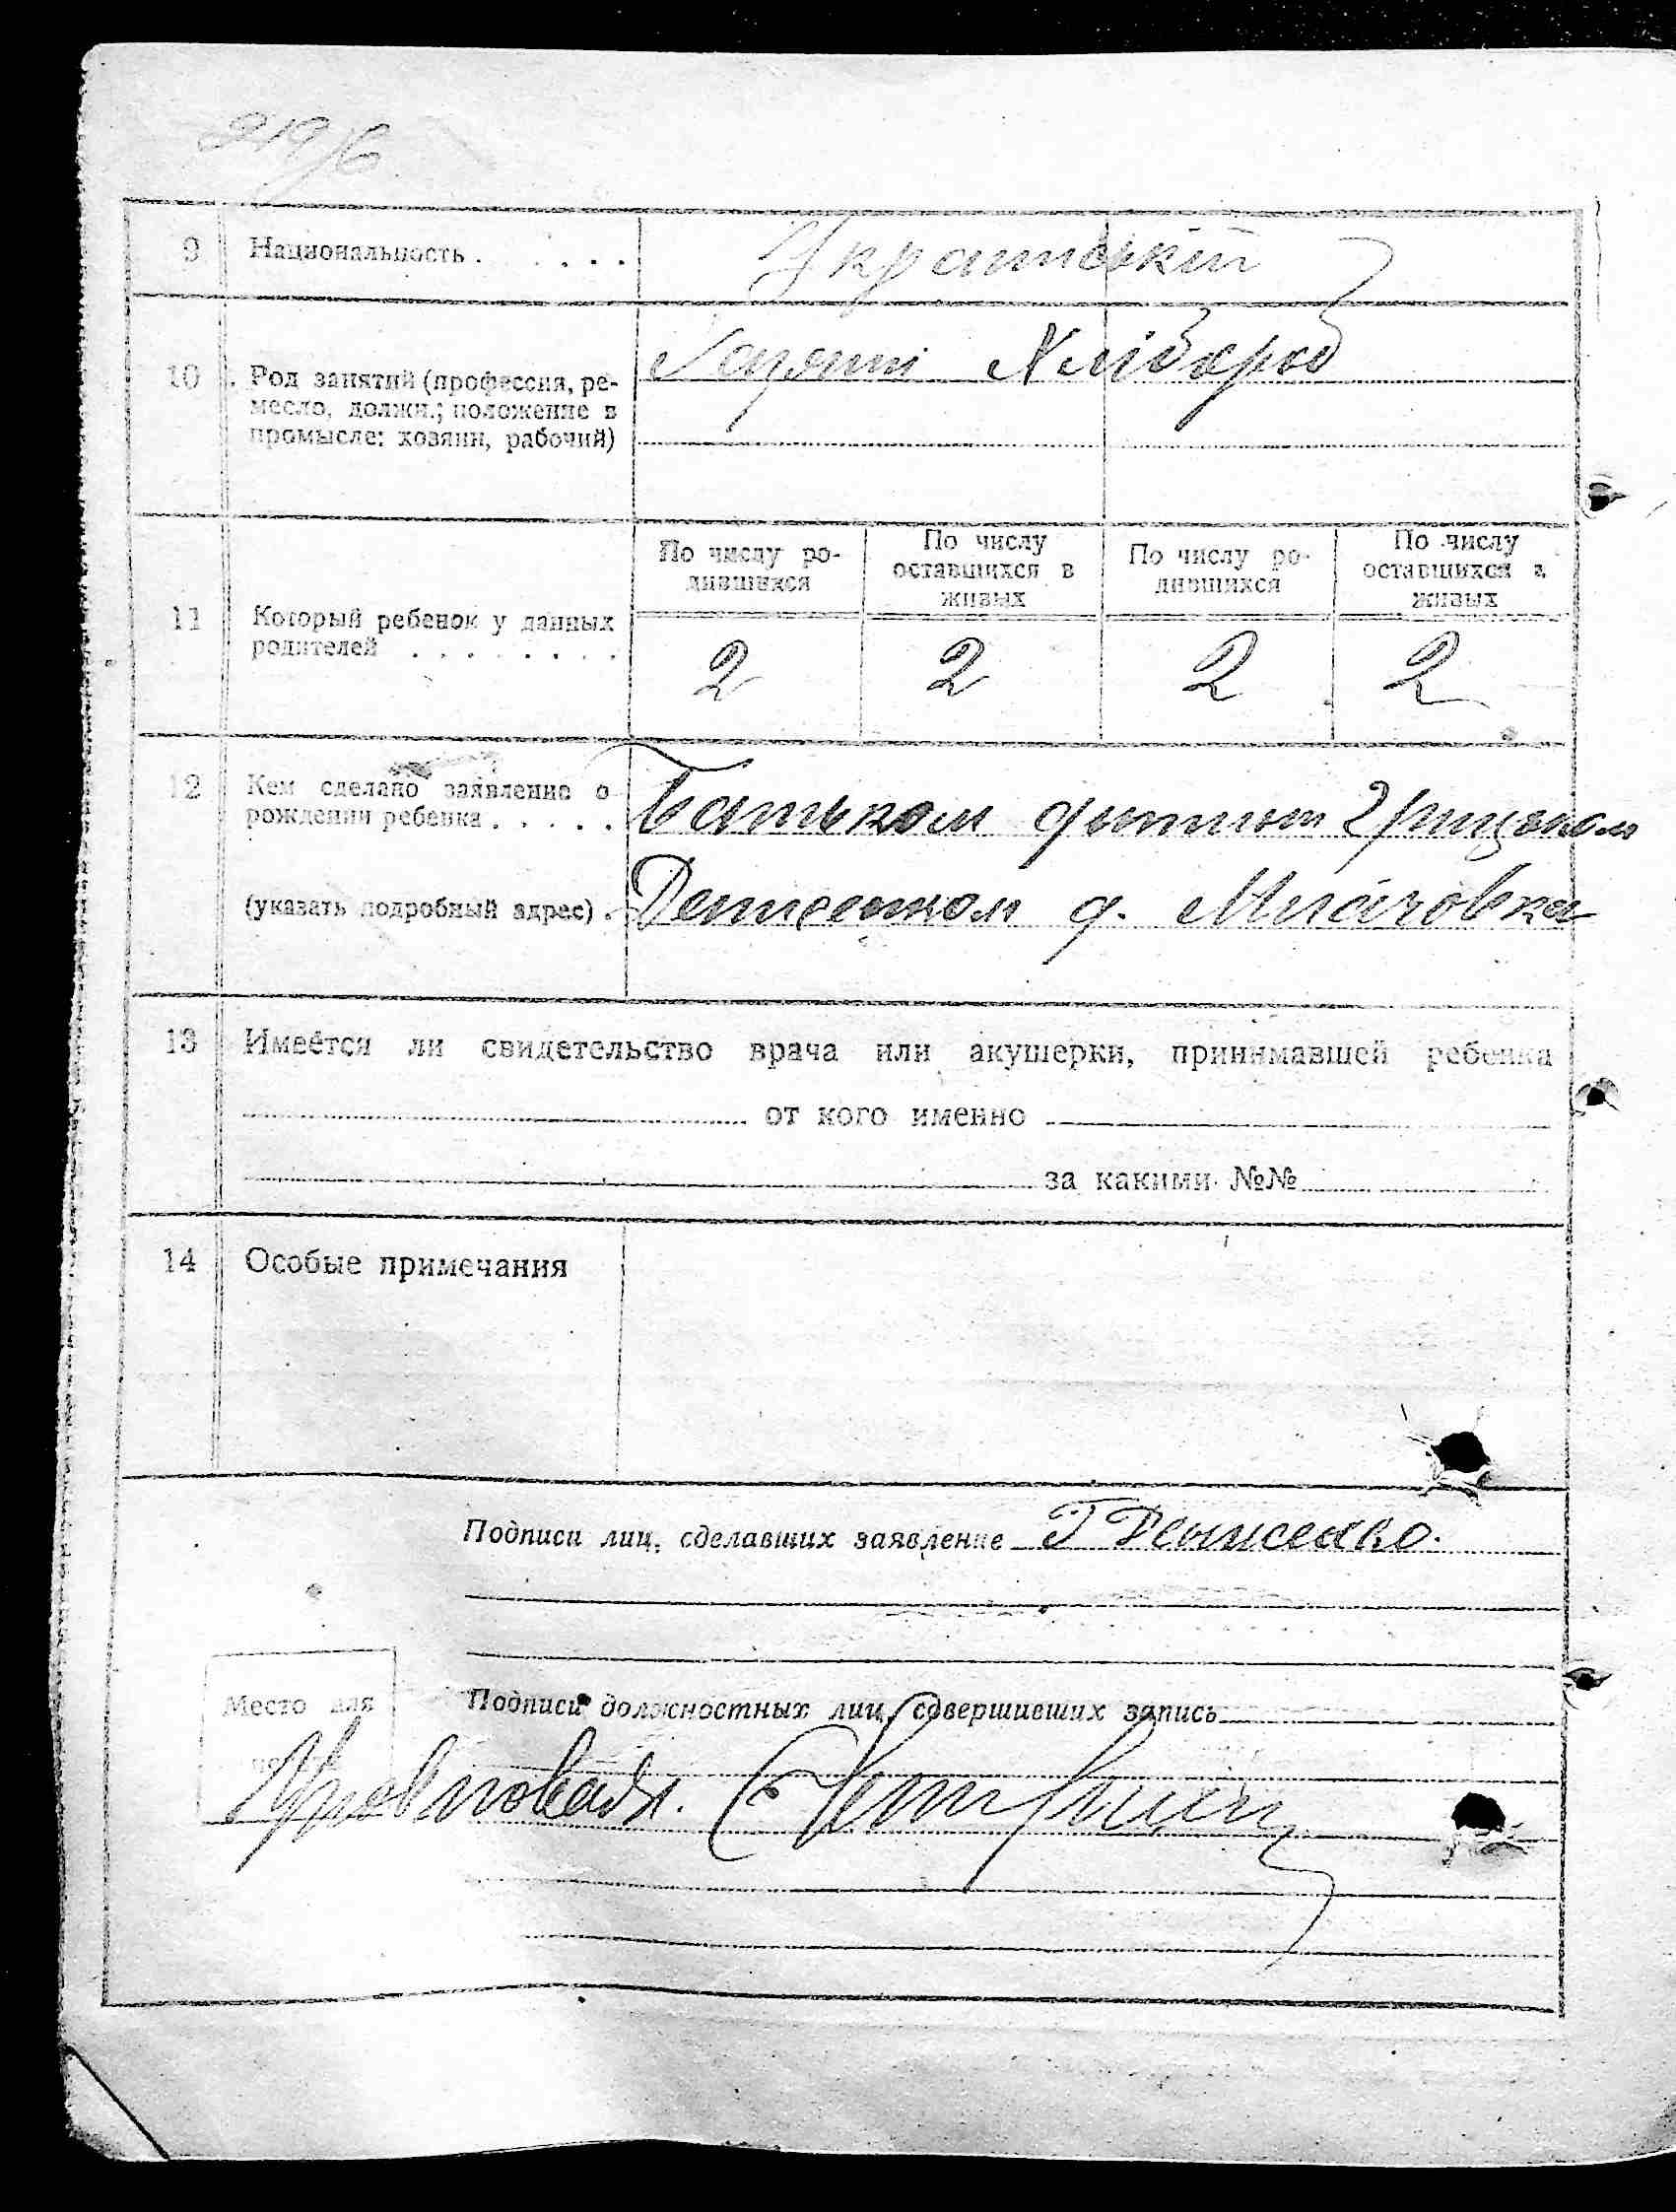 9 Национальность . . . . . Український
10 Род занятий (профессия, ре-
месло, должн.; положение в
промысле: хозяин, рабочий)
Хлібороб
11 Который ребенок у данных
родителей . . . . . . . .
По числу ро-
дившихся
По числу
оставшихся в
живых
По числу ро-
дившихся
По числу
оставшихся в
живых
2 2 2 2
12 Кем сделано заявление о
рождении ребенка . . . . .
Батьком дытыны Грицьком
(указать подробный адрес) .
Денисенком д.
13 Имеется ли свидетельство врача или акушерки, принимавшей ребенка
от кого именно
за какими №№
14 Особые примечания
Подписи лиц, сделавших заявление Г Денисенко.
Место для
Подписи должностных лиц, совершивших запись